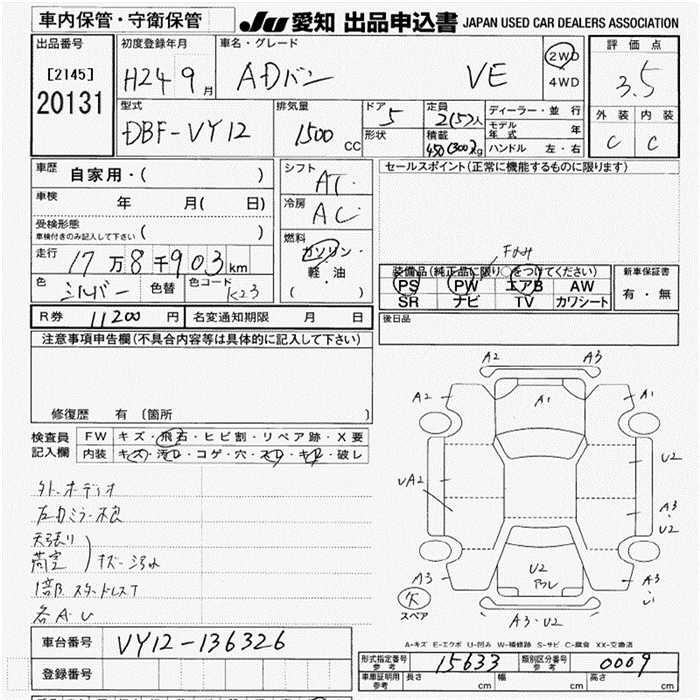 車内保管・守衛保管
JU 愛知 出品申込書 JAPAN USED CAR DEALERS ASSOCIATION
出品番号
[2145]
20131
初度登録年月
H24 9月
車名・グレード
ADバン VE
2WD
4WD
評価点
3.5
外装 内装
C C
型式
DBF-VY12
排気量
1500 cc
ドア
5
形状
定員
2(5)人
積載
450(300)kg
ディーラー・並行
モデル年式 年
ハンドル 左・右
車歴 自家用・( )
車検 年 月( 日)
受検形態
車検付きのみ記入して下さい ( )
走行 17万8千903km
色 シルバー 色替 色コード K23
シフト AT
冷房 AC
燃料
ガソリン・
軽油
( ・ )
セールスポイント(正常に機能するものに限ります)
装備品(純正品に限り○をつけてください)
PS PW エアB AW
SR ナビ TV カワシート
新車保証書
有・無
R券 11200円 名変通知期限 月 日
後日品
注意事項申告欄(不具合内容等は具体的に記入して下さい)
修復歴 有〔箇所 〕
検査員記入欄
FW キズ・飛石・ヒビ割・リペア跡・X要
内装 キズ・汚レ・コゲ・穴・スレ・キレ・破レ
外.オーディオ
左力ミラー不良
天張り
荷室 キズ・汚れ
1部スタッドレスT
各A・U
A2 A3
A2 A1 A1
UA2 U2
A3・U2
U2
アレ
A3 A3
A3・U2
欠
スペア
A=キズ E=エクボ U=凹み W=補修跡 S=サビ C=腐食 XX=交換済
車台番号 VY12-136326
登録番号
形式指定番号参考 15633 類別区分番号参考 0009
車車証明用参考 長さ cm 幅 cm 高さ cm